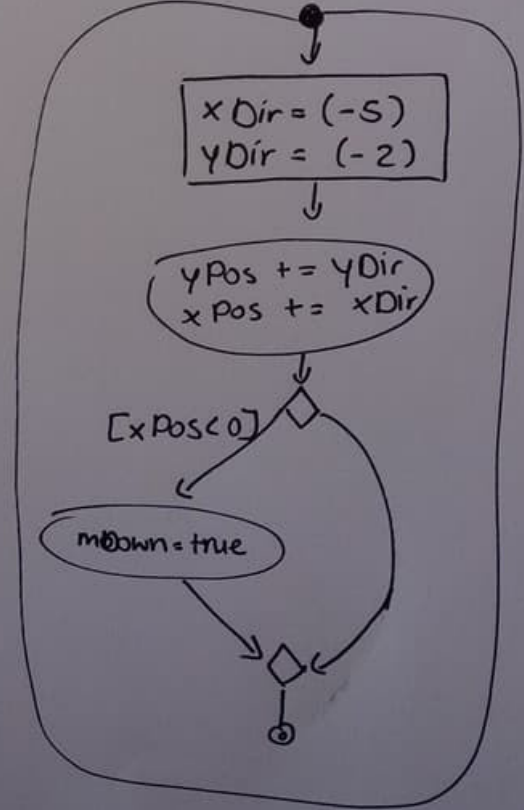 xDir = (-5)
yDir = (-2)
yPos += yDir
xPos += xDir
[xPos<0]
moDown = true